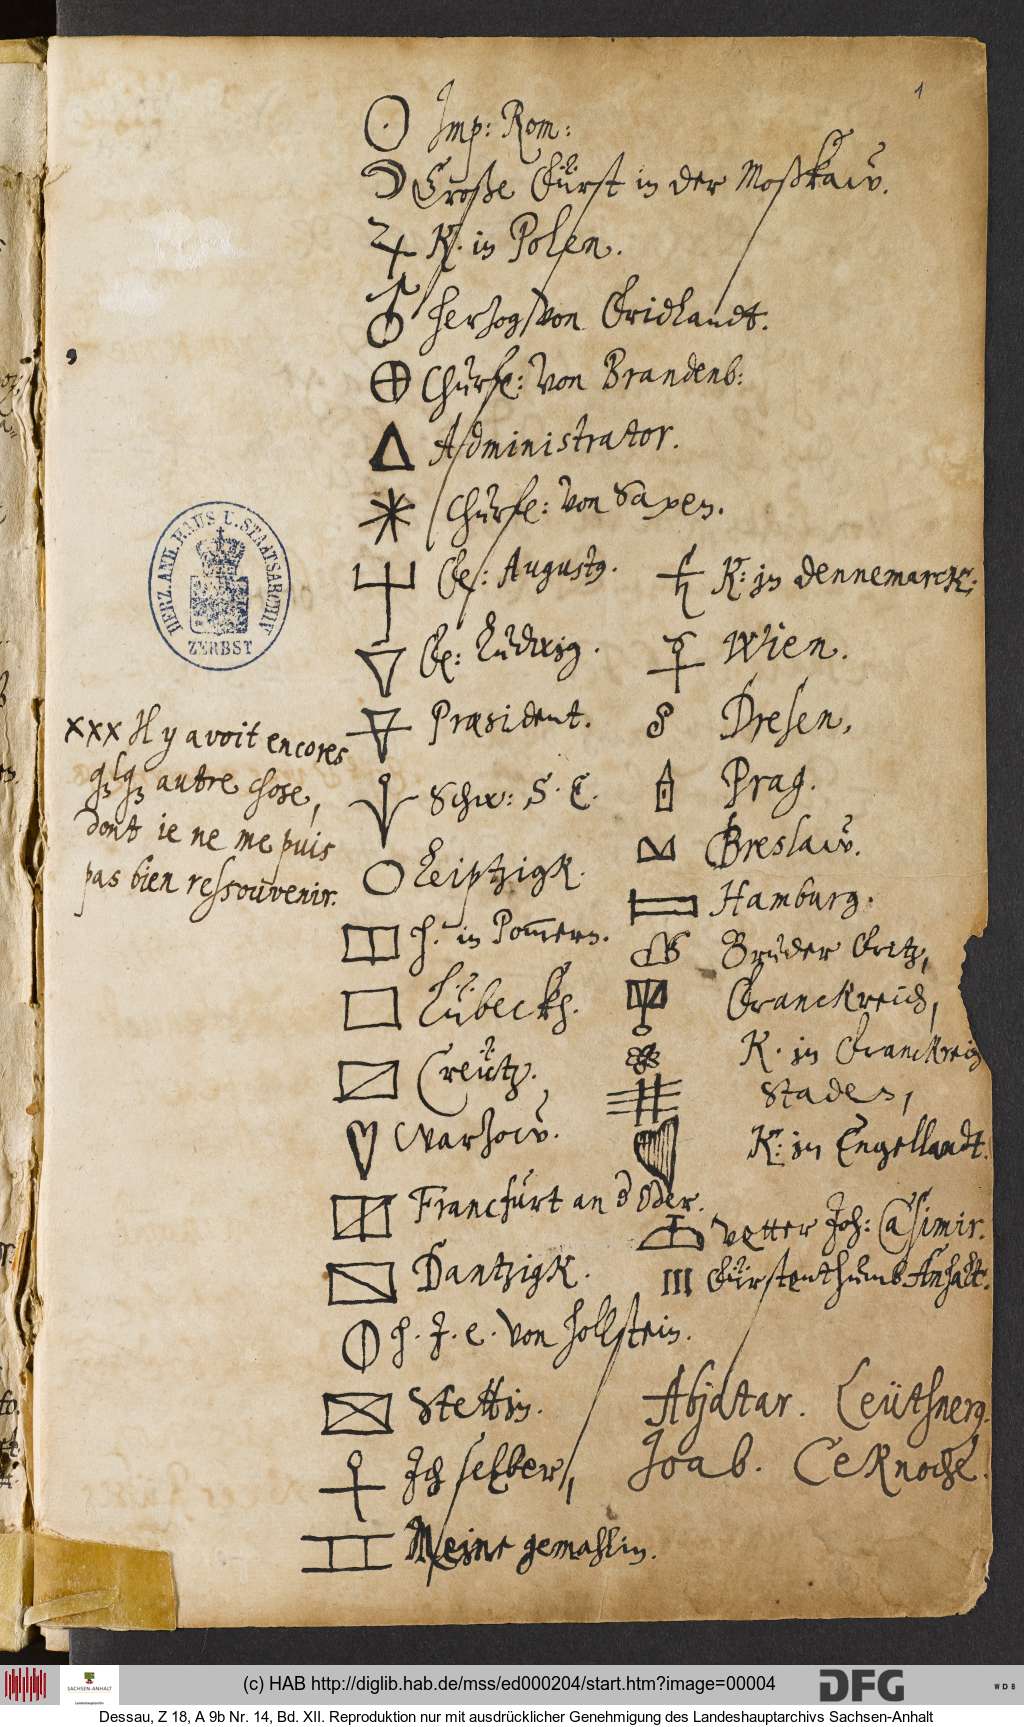 1
Imp: Rom:
Große Fürst in der Moßkaw.
K. in Polen.
Herzog von Fridlandt.
Churf: von Brandenb:
Administrator.
Churf: von Saxen.
F: Augustg.
F: Ludwig.
Præsident.
Schw: S. E.
Leiptzigk.
H. in Pom̄ern.
Lübeckh.
Creütz.
Warsow.
Francfurt an d Oder.
Dantzigk.
H. J. E. von Hollstein.
Stettin.
Ich selber,
Meine gemahlin.
K: in Dennemarck.
Wien.
Dresen,
Prag.
Breslaw.
Hamburg.
Bruder Fritz,
Franckreich,
K. in Franckreich
Staden,
K: in Engellandt.
Vetter Joh: Casimir.
Fürstenthumb Anhalt.
Abjatar. Leütsnerg.
Joab. Cernochk.
xxx Il y avoit encores
autre chose,
dont ie ne me puis
pas bien ressouvenir.
HERZ. ANH. HAUS U. STAATSARCHIV
ZERBST
SACHSEN-ANHALT
(c) HAB http://diglib.hab.de/mss/ed000204/start.htm?image=00004
DFG
WDB
Dessau, Z 18, A 9b Nr. 14, Bd. XII. Reproduktion nur mit ausdrücklicher Genehmigung des Landeshauptarchivs Sachsen-Anhalt